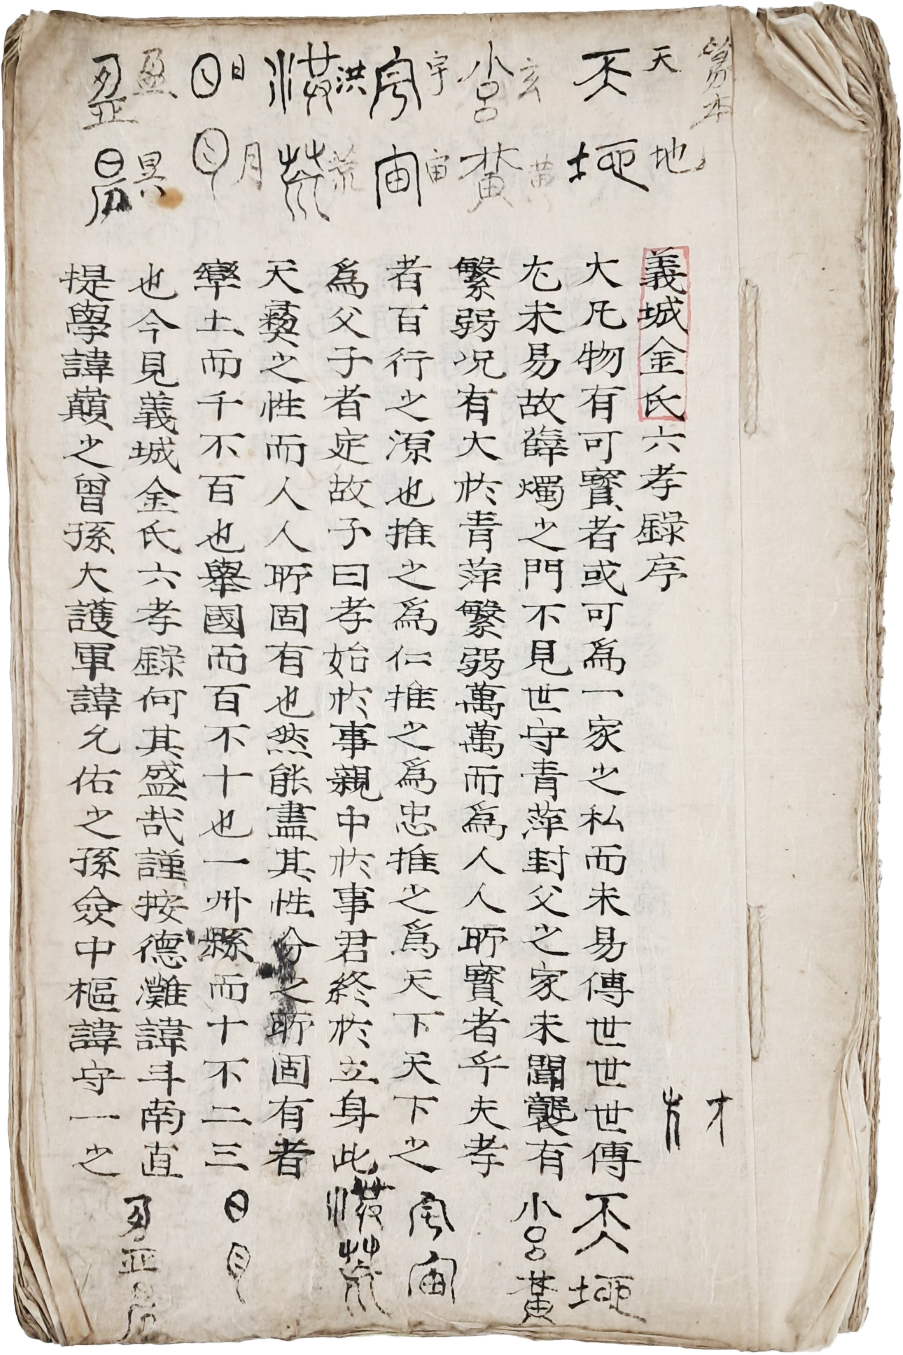 天地
玄黃
宇宙
洪荒
日月
盈昃
義城金氏六孝錄序
大凡物有可寶者或可爲一家之私而未易傳世世世傳
尤未易故薛燭之門不見世守青萍封父之家未聞襲有
繁弱况有大於青萍繁弱萬萬而爲人人所寶者乎夫孝
者百行之源也推之爲仁推之爲忠推之爲天下天下之
爲父子者定故子曰孝始於事親中於事君終於立身此
天彛之性而人人所固有也然能盡其性分之所固有者
率土而千不百也舉國而百不十也一州縣而十不二三
也今見義城金氏六孝錄何其盛哉謹按德灘諱斗南直
提學諱巔之曾孫大護軍諱允佑之孫僉中樞諱守一之
才
天地
玄黃
宇宙
洪荒
日月
盈昃